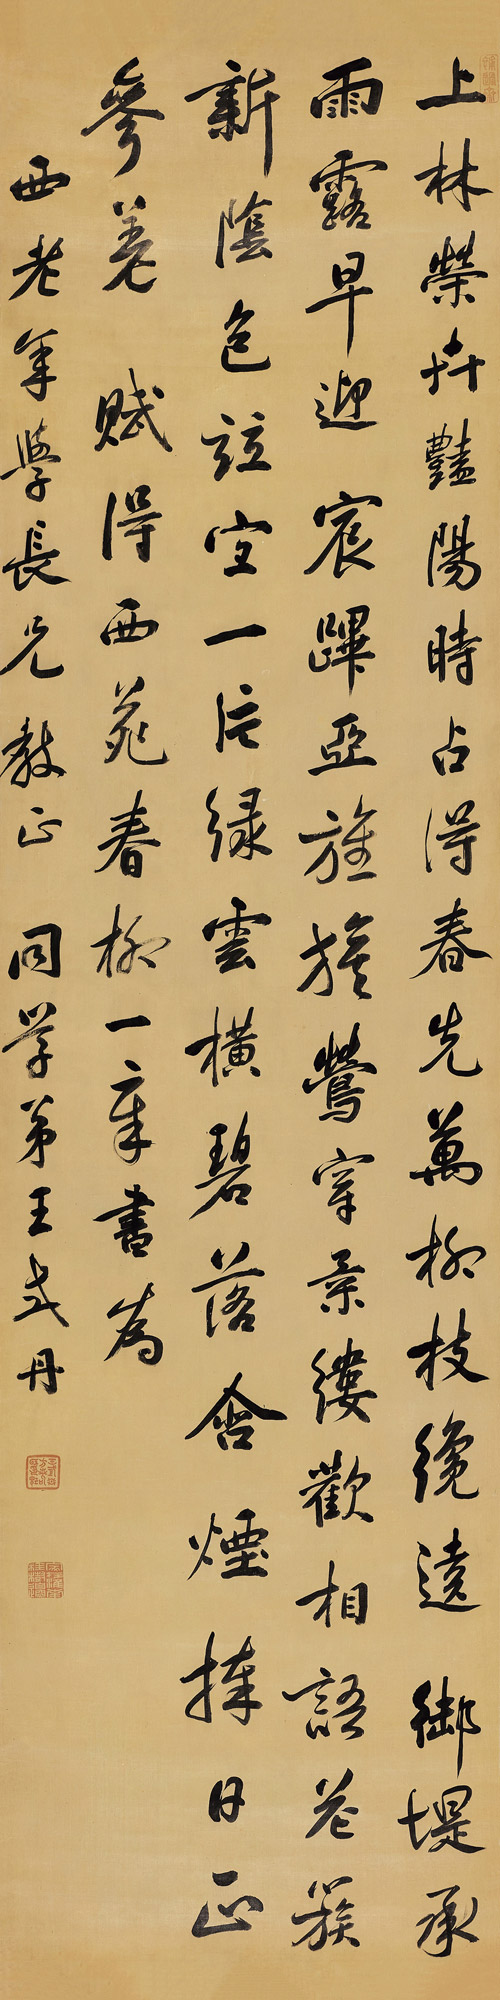 上林榮卉豔陽時占得春先萬柳枝纔遶 御堤承
雨露早迎 宸蹕亞旌旗鶯穿柔縷歡相語花簇
新陰色竝宜一片綠雲橫碧落含煙捧日正
參差 賦得西苑春柳一章書為
西老年學長兄教正 同學弟王式丹